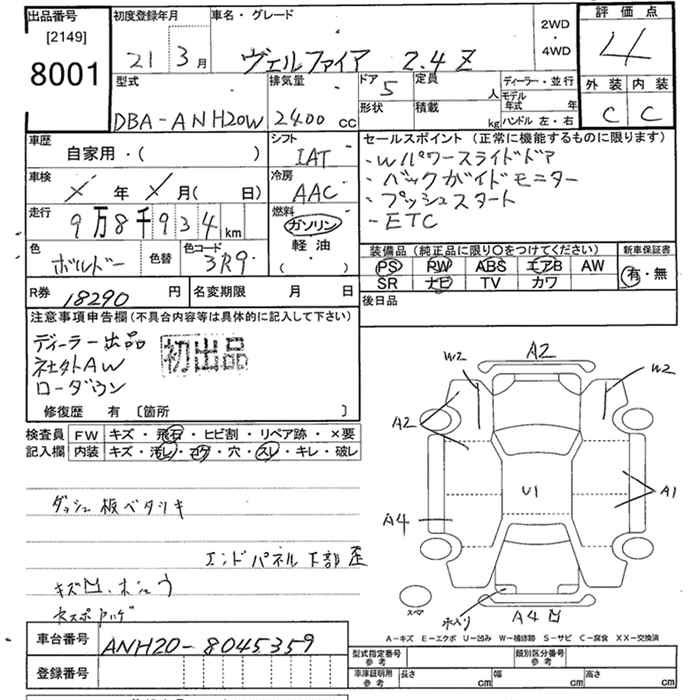 出品番号 [2149] 8001
初度登録年月 21 3月
車名・グレード ヴェルファイア 2.4 Z
2WD・4WD
評価点 4
外装 内装
C C
型式 DBA-ANH20W
排気量 2400 cc
ドア 5 定員 人
形状 積載 kg
ディーラー・並行
モデル年式 年
ハンドル 左・右
車歴 自家用・( )
シフト IAT
車検 X年 X月( 日)
冷房 AAC
走行 9万8千934km
燃料 ガソリン 軽油 ( ・ )
色 ボルドー 色替 色コード 3R9
セールスポイント (正常に機能するものに限ります)
・Wパワースライドドア
・バックガイドモニター
・プッシュスタート
・ETC
装備品 (純正品に限り○をつけてください) 新車保証書
PS PW ABS エアB AW 有・無
SR ナビ TV カワ
後日品
R券 18290円 名変期限 月 日
注意事項申告欄(不具合内容等は具体的に記入して下さい)
ディーラー出品 初出品
社外AW
ローダウン
修復歴 有 〔箇所 〕
検査員 FW キズ・飛石・ヒビ割・リペア跡・×要
記入欄 内装 キズ・汚レ・コゲ・穴・スレ・キレ・破レ
ダッシュ板ベタツキ
エンドパネル下部歪
キズ凹
車台番号 ANH20-8045359
登録番号
W2 A2 W2
A2
U1 A1
A4
スペア A4凹
A-キズ E-エクボ U-凹み W-補修跡 S-サビ C-腐食 XX-交換済
型式指定番号 参考 類別区分番号 参考
車庫証明用 参考 長さ cm 幅 cm 高さ cm